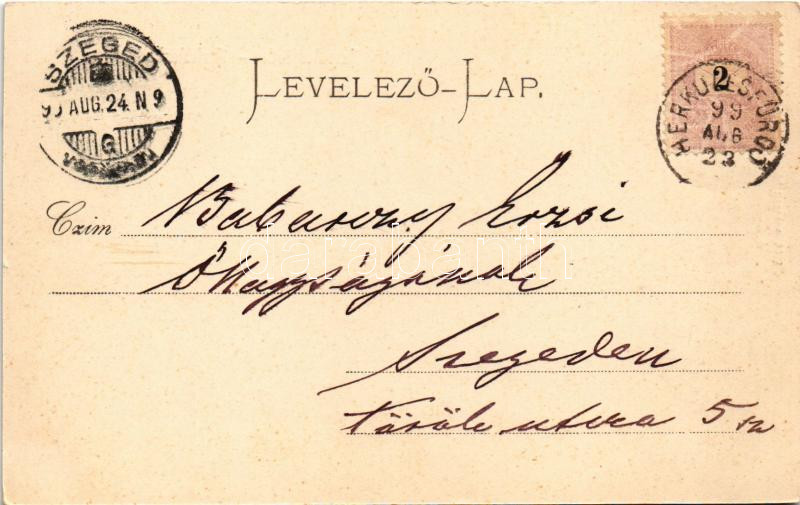 SZEGED
99 AUG. 24. N 9
G
LEVELEZŐ-LAP.
2
HERKULESFÜRDŐ
99
AUG
23
Czim Babarczy Erzsi
Őnagyságának
Szegeden
Török utcza 5 sz
darabanth